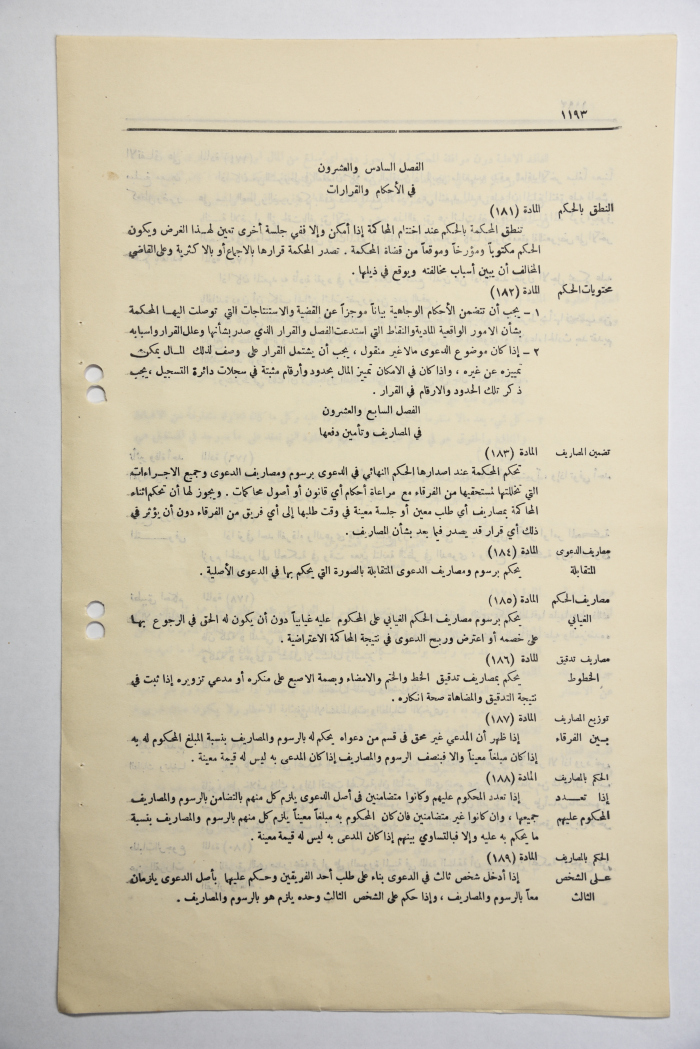 ١١٩٣
الفصل السادس والعشرون
في الأحكام والقرارات
النطق بالحكم المادة (١٨١)
تنطق المحكمة بالحكم عند اختتام المحاكمة إذا أمكن وإلا ففي جلسة أخرى تعين لهـذا الغرض ويكون
الحكم مكتوباً ومؤرخاً وموقعاً من قضاة المحكمة . تصدر المحكمة قرارها بالاجماع أو بالاكثرية وعلى القاضي
المخالف أن يبين أسباب مخالفته ويوقع في ذيلها .
محتويات الحكم المادة (١٨٢)
١ - يجب أن تتضمن الأحكام الوجاهية بياناً موجزاً عن القضية والاستنتاجات التي توصلت اليهـا المحكمة
بشأن الامور الواقعية المادية والنقاط التي استدعت الفصل والقرار الذي صدر بشأنها وعلل القرار واسبابه
٢ - إذا كان موضوع الدعوى مالا غير منقول ، يجب أن يشتمل القرار على وصف لذلك المـال يمكن
تمييزه عن غيره ، واذا كان في الامكان تمييز المال بحدود وأرقام مثبتة في سجلات دائرة التسجيل ، يجب
ذكر تلك الحدود والارقام في القرار .
الفصل السابع والعشرون
في المصاريف وتأمين دفعها
تضمين المصاريف المادة (١٨٣)
تحكم المحكمة عند اصدارها الحكم النهائي في الدعوى برسوم ومصاريف الدعوى وجميع الاجراءات
التي تخللتها لمستحقيها من الفرقاء مع مراعاة أحكام أي قانون أو أصول محاكمات . ويجوز لها أن تحكم اثناء
المحاكمة بمصاريف أي طلب معين أو جلسة معينة في وقت طلبها إلى أي فريق من الفرقاء دون أن يؤثر في
ذلك أي قرار قد يصدر فيما بعد بشأن المصاريف .
مصاريف الدعوى المادة (١٨٤)
المتقابلة يحكم برسوم ومصاريف الدعوى المتقابلة بالصورة التي يحكم بها في الدعوى الأصلية .
مصاريف الحكم المادة (١٨٥)
الغيابي يحكم برسوم مصاريف الحكم الغيابي على المحكوم عليه غيابياً دون أن يكون له الحق في الرجوع بهـا
على خصمه أو اعترض وربح الدعوى في نتيجة المحاكمة الاعتراضية .
مصاريف تدقيق المادة (١٨٦)
الخطوط يحكم بمصاريف تدقيق الخط والختم والامضاء وبصمة الاصبع على منكره أو مدعي تزويره إذا ثبت في
نتيجة التدقيق والمضاهاة صحة انكاره .
توزيع المصاريف المادة (١٨٧)
بـين الفرقاء إذا ظهر أن المدعي غير محق في قسم من دعواه يحكم له بالرسوم والمصاريف بنسبة المبلغ المحكوم له به
إذا كان مبلغاً معيناً والا فبنصف الرسوم والمصاريف إذا كان المدعى به ليس له قيمة معينة .
الحكم بالمصاريف المادة (١٨٨)
إذا تعـــدد إذا تعدد المحكوم عليهم وكانوا متضامنين في أصل الدعوى يلزم كل منهم بالتضامن بالرسوم والمصاريف
المحكوم عليهم جميعها ، وان كانوا غير متضامنين فان كان المحكوم به مبلغاً معيناً يلزم كل منهم بالرسوم والمصاريف بنسبة
ما يحكم به عليه وإلا فبالتساوي بينهم إذا كان المدعى به ليس له قيمة معينة .
الحكم بالمصاريف المادة (١٨٩)
عـلى الشخص إذا أدخل شخص ثالث في الدعوى بناء على طلب أحد الفريقين وحكم عليهما بأصل الدعوى يلزمان
الثالث معاً بالرسوم والمصاريف ، وإذا حكم على الشخص الثالث وحده يلزم هو بالرسوم والمصاريف .